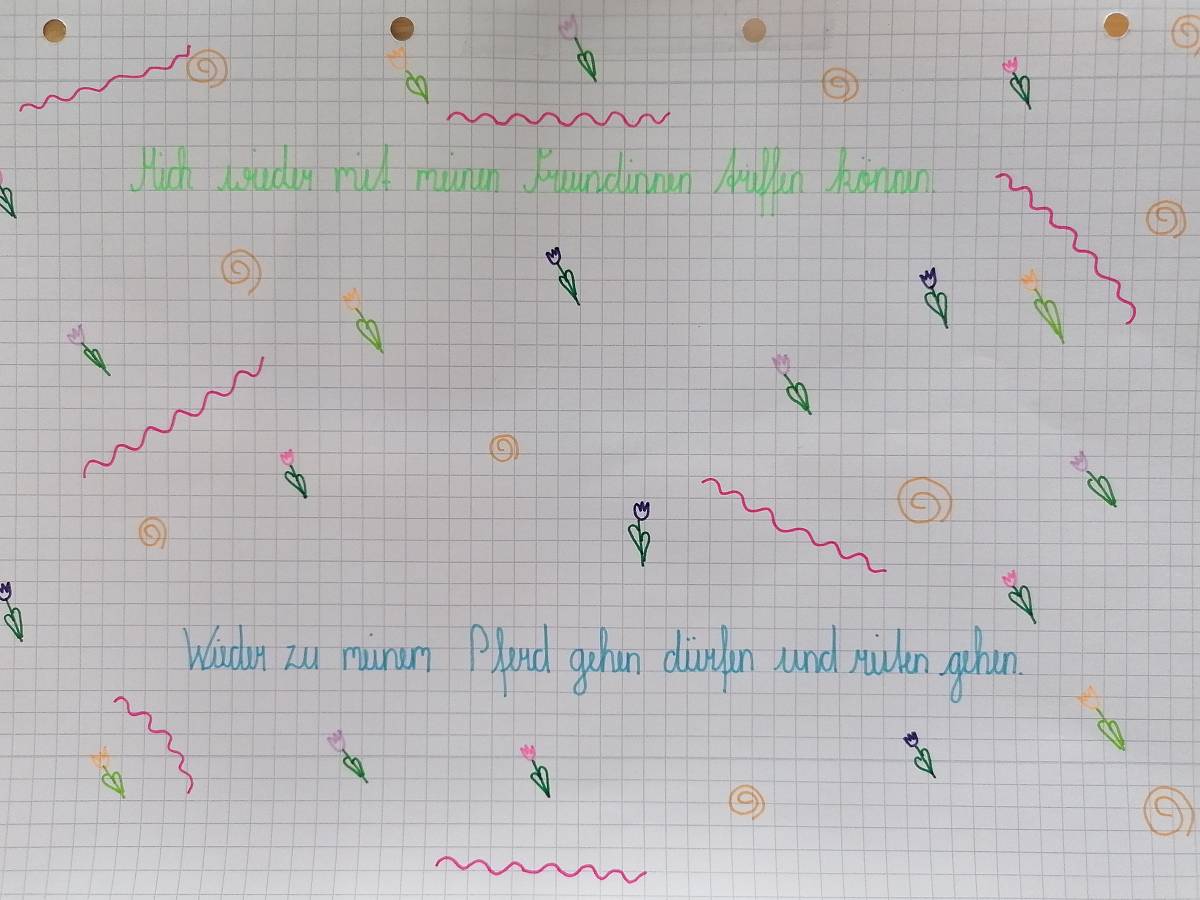 Mich wieder mit meinen Freundinnen treffen können.
Wieder zu meinem Pferd gehen dürfen und reiten gehen.